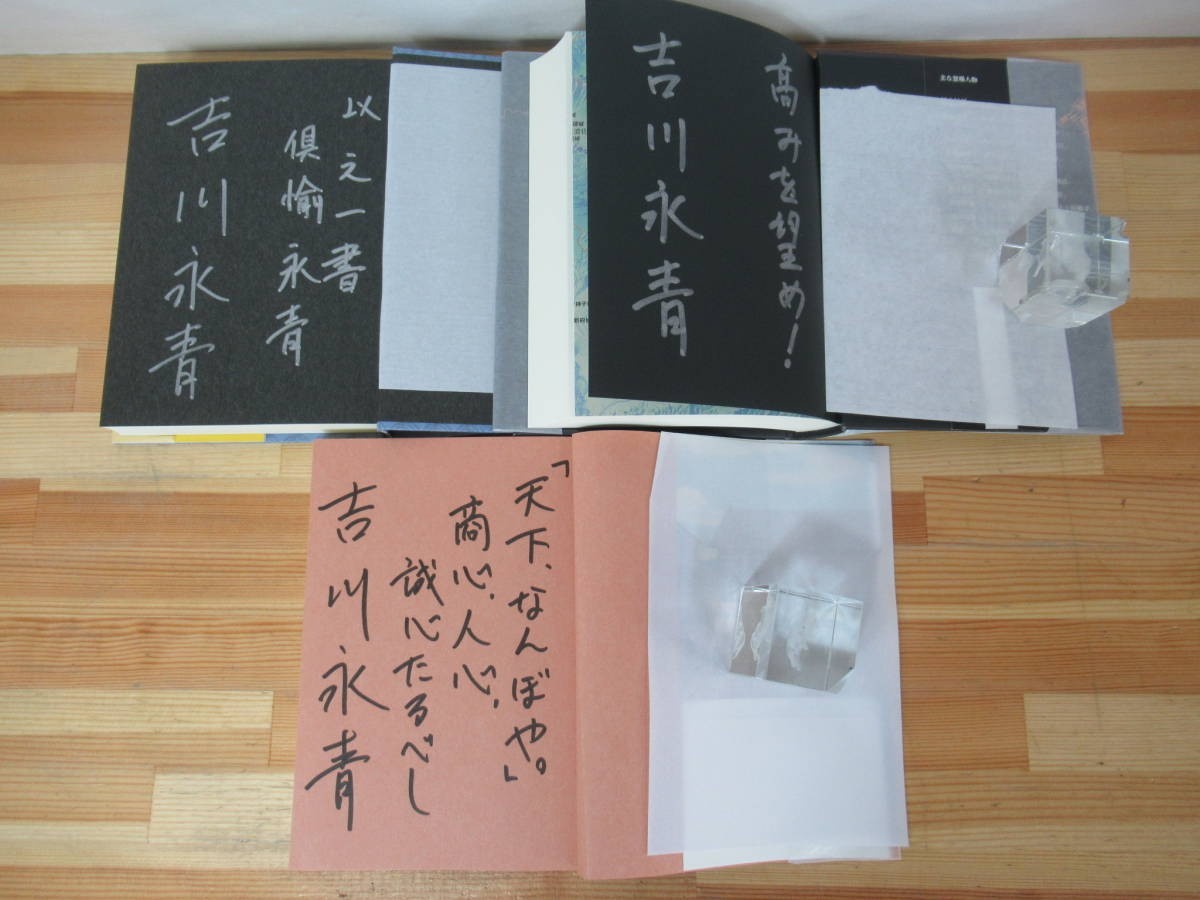 以之一書
倶愉永青
吉川永青
高みを望め!
吉川永青
主な登場人物
「天下、なんぼや。」
商心、人心、
誠心たるべし
吉川永青